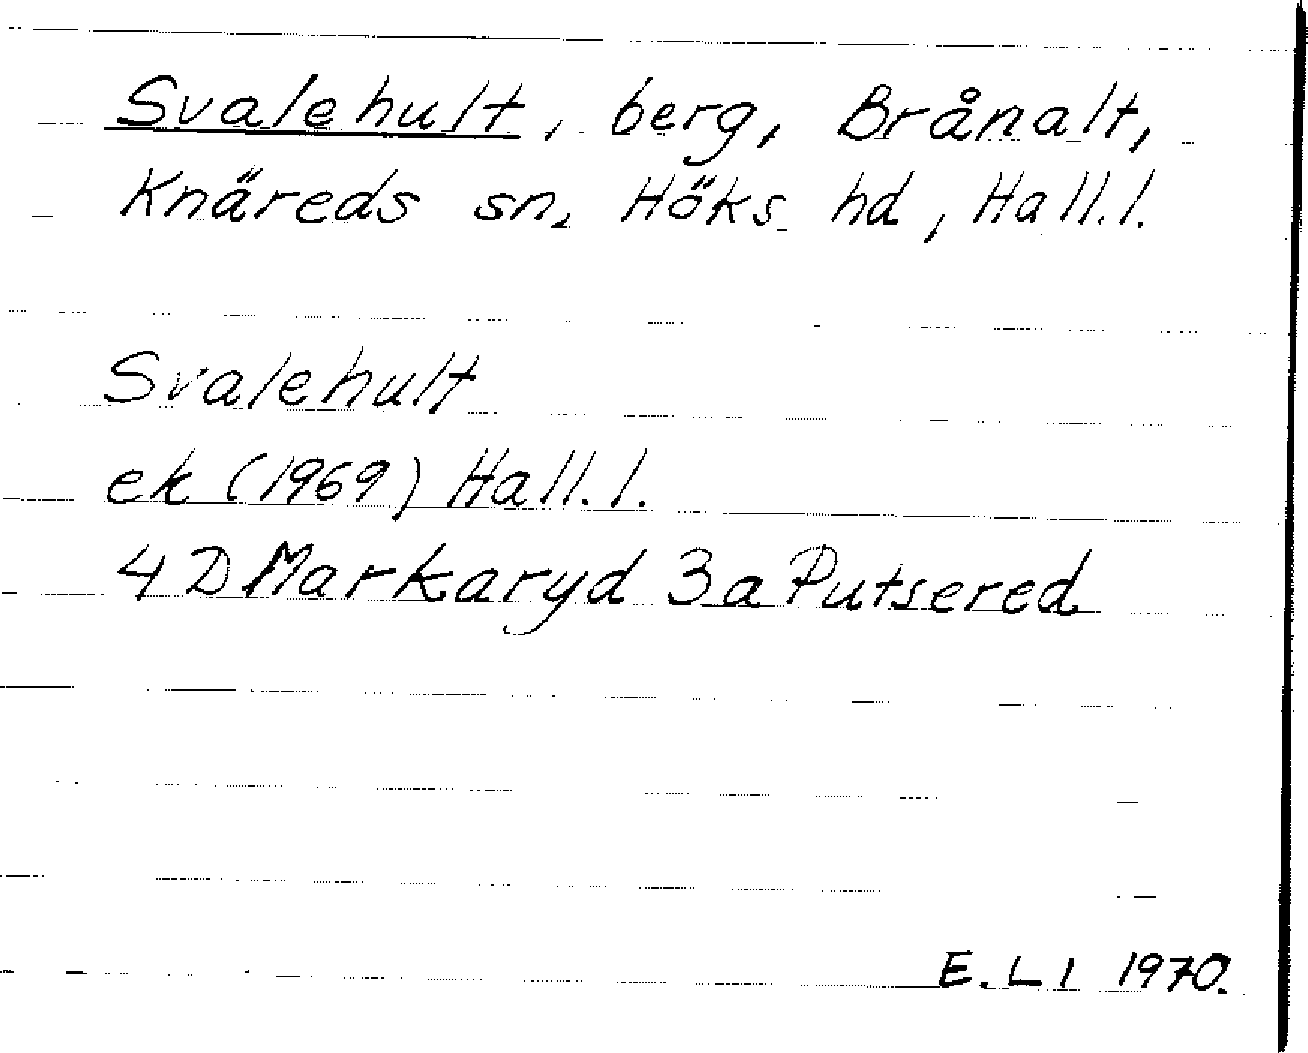 Svalehult, berg, Brånalt,
Knäreds sn, Höks hd, Hall.l.
Svalehult
ek (1969) Hall.l.
4 D Markaryd 3a Putsered
E.L I 1970.